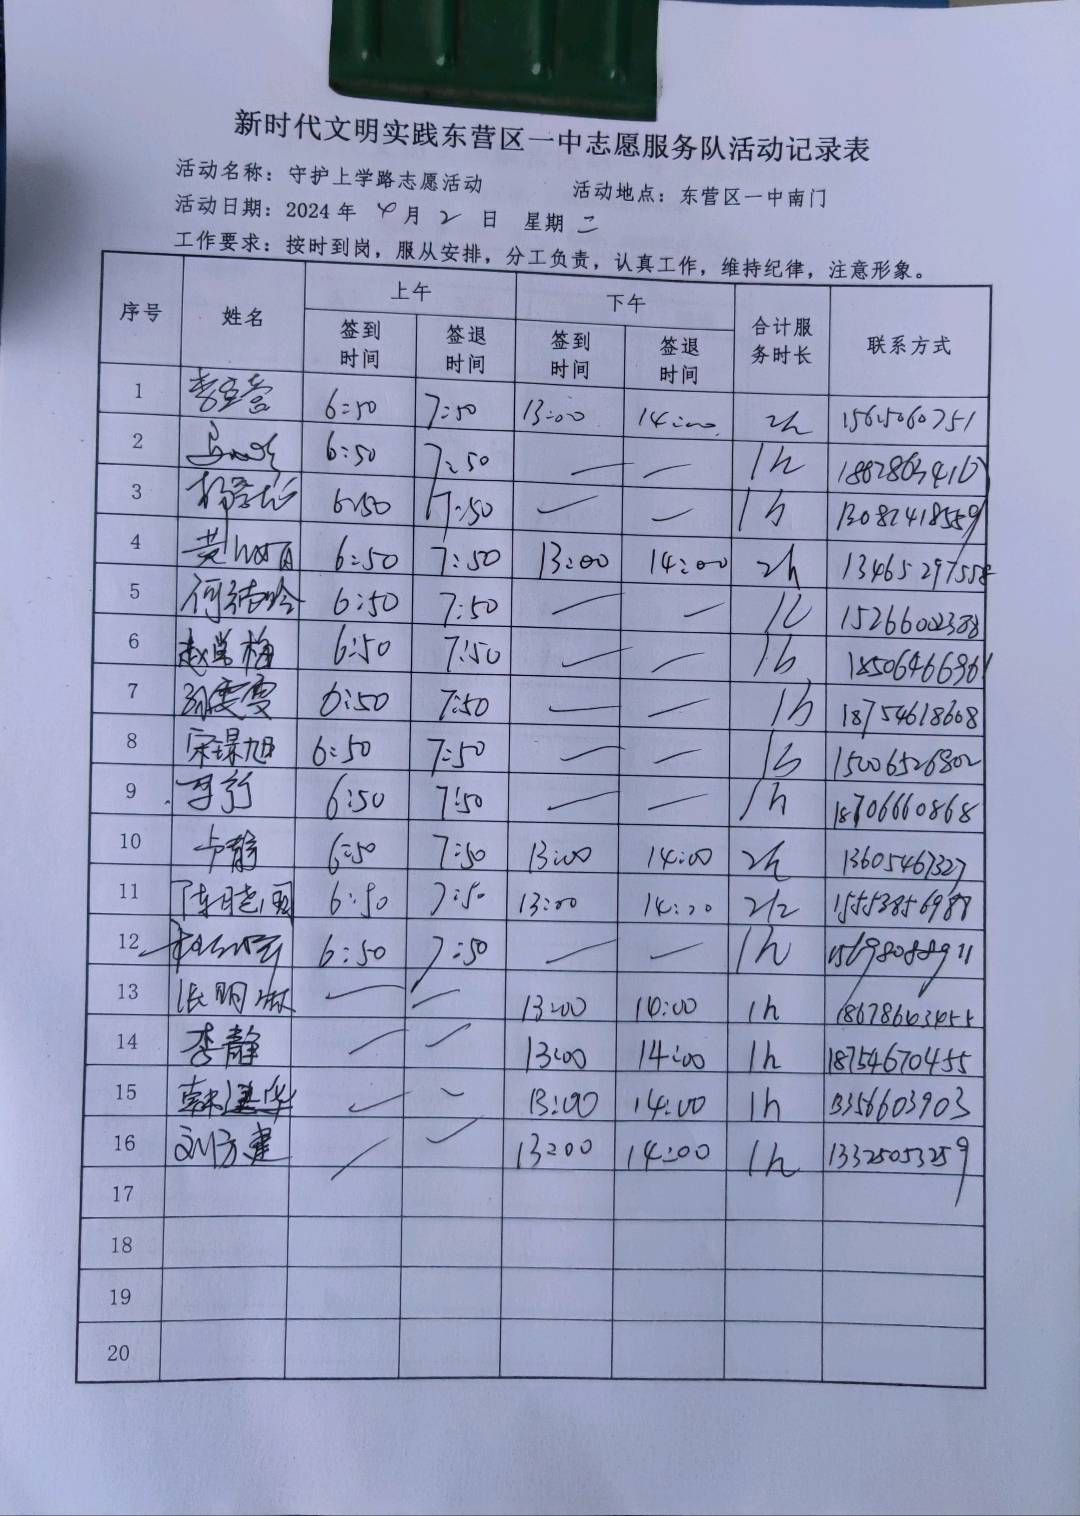 新时代文明实践东营区一中志愿服务队活动记录表
活动名称：守护上学路志愿活动 活动地点：东营区一中南门
活动日期：2024年 4月 2 日 星期 二
工作要求：按时到岗，服从安排，分工负责，认真工作，维持纪律，注意形象。
序号 姓名 上午 下午 合计服务时长 联系方式
签到时间 签退时间 签到时间 签退时间
1 6:50 7:50 13:00 14:00 2h 15615060751
2 6:50 7:50 — — 1h
3 6:50 7:50 — — 1h 13082418559
4 6:50 7:50 13:00 14:00 2h 13465297558
5 6:50 7:50 — — 1h 15266002388
6 赵常梅 6:50 7:50 — — 1h 18506466961
7 6:50 7:50 — — 1h 18754618608
8 6:50 7:50 — — 1h 15006526802
9 6:50 7:50 — — 1h 18706660868
10 卢静 6:50 7:50 13:00 14:00 2h 13605467327
11 陈晓丽 6:50 7:50 13:00 14:00 2h 15553856988
12 6:50 7:50 — — 1h 15698088911
13 张明淑 — — 13:00 14:00 1h 18678643455
14 李静 — — 13:00 14:00 1h 18754670455
15 韩建华 — — 13:00 14:00 1h 13356603903
16 刘方建 — — 13:00 14:00 1h 13325053259
17
18
19
20